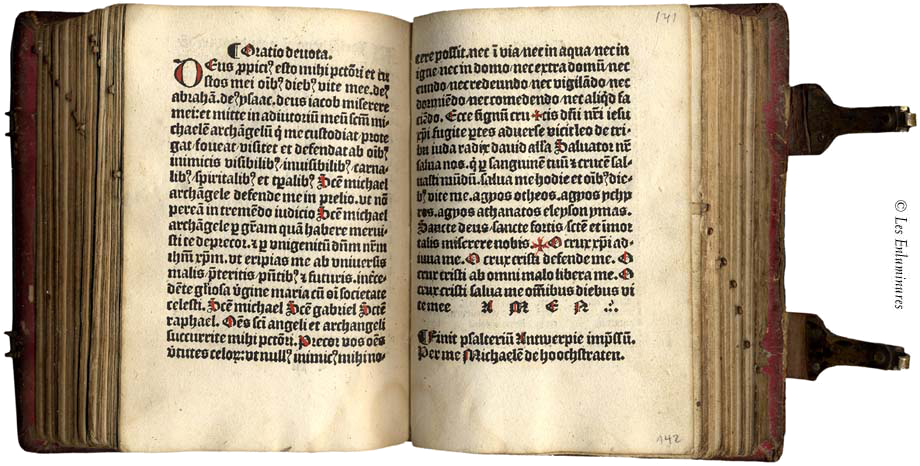 ¶ Oratio deuota.
DEus ꝓpicꝰ esto mihi pctōri et cu
stos mei oībꝰ diebꝰ vite mee. deꝰ
abrahā. deꝰ ysaac. deus iacob miserere
mei: et mitte in adiutoriū meū scm̄ mi
chaelē archāgelū q̄ me custodiat prote
gat foueat visitet et defendat ab oībꝰ
inimicis visibilibꝰ/inuisibilibꝰ/carna-
libꝰ/spiritalibꝰ et tꝑalibꝰ Scē michael
archāgele defende me in prelio. vt nō
pereā in tremēdo iudicio Scē michael
archāgele ꝑ gr̄am quā habere merui
sti te deprecor. ⁊ ꝑ vnigenitū dn̄m nr̄m
ihm̄ xp̄m. vt eripias me ab vniuersis
malis p̄teritis pn̄tibꝰ ⁊ futuris. int̄ce-
dēte gl̄iosa v̄gine maria cū oī societate
celesti. Scē michael Scē gabriel Scē
raphael. Oēs sci angeli et archangeli
succurrite mihi pctōri. Precor vos oēs
v̄tutes celoꝝ: vt nullꝰ inimicꝰ mihi no-
141
cere possit. nec ī via/nec in aqua/nec in
igne/nec in domo/nec extra domū/nec
eundo/nec redeundo/nec vigilādo/nec
dormiēdo/nec comedendo/nec aliqd̄ fa
ciēdo. Ecce signū cru✠cis dn̄i nr̄i iesu
xp̄i fugite ꝑtes aduerse vicit leo de tri-
bu iuda radix dauid alla Saluator m̄
salua nos. q̄ ꝑ sanguinē tuū ⁊ crucē sal-
uasti mūdū. salua me hodie et oībꝰ die-
bꝰ vite me. agyos otheos. agyos ychyr
ros. agyos athanatos eleyson ymas.
Sancte deus/sancte fortis/scē et imor
talis miserere nobis. ✠ O crux xp̄i ad-
iuua me. O crux cristi defende me. O
crux cristi ab omni malo libera me. O
crux cristi salua me omībus diebus vi
te mee A M E N .·.
¶ Finit psalteriū Antwerpie imp̄ssū.
Per me Michaelē de hoochstraten.
142
© Les Enluminures